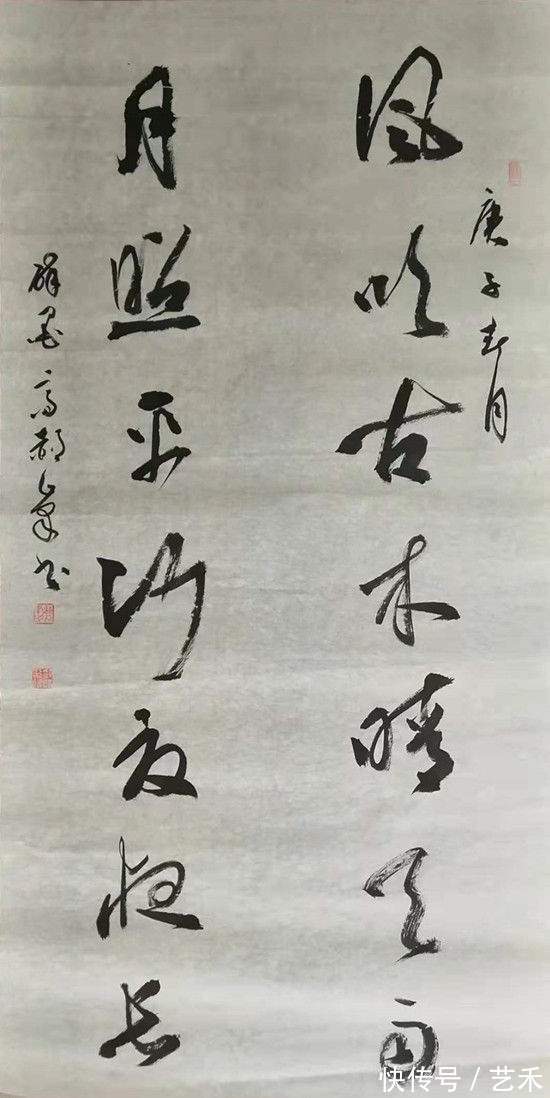 庚子春月
风吹古木晴天雨
月照平沙夏夜长
墨高书
快传号 / 艺禾